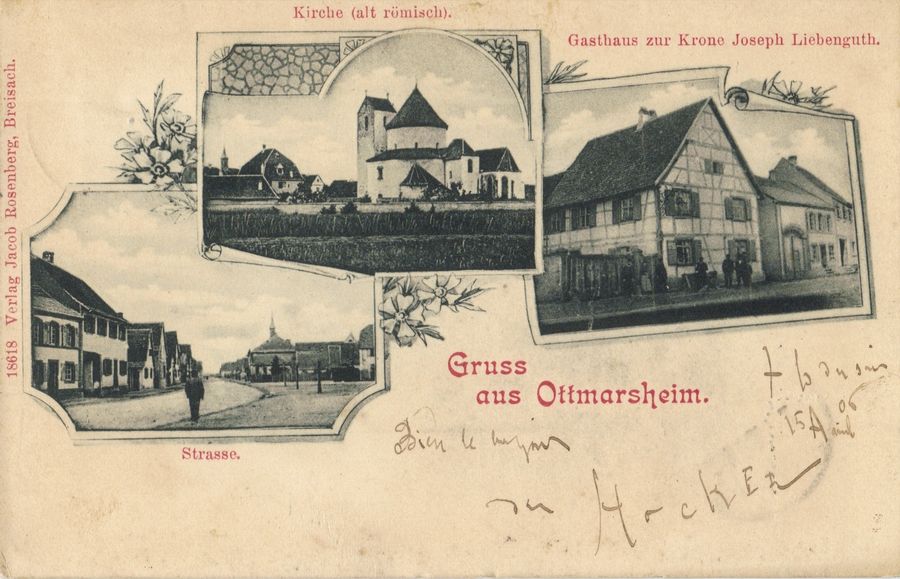 Kirche (alt römisch).
Gasthaus zur Krone Joseph Liebenguth.
18618 Verlag Jacob Rosenberg, Breisach.
Strasse.
Gruss
aus Ottmarsheim.
15 A 06
Bien le